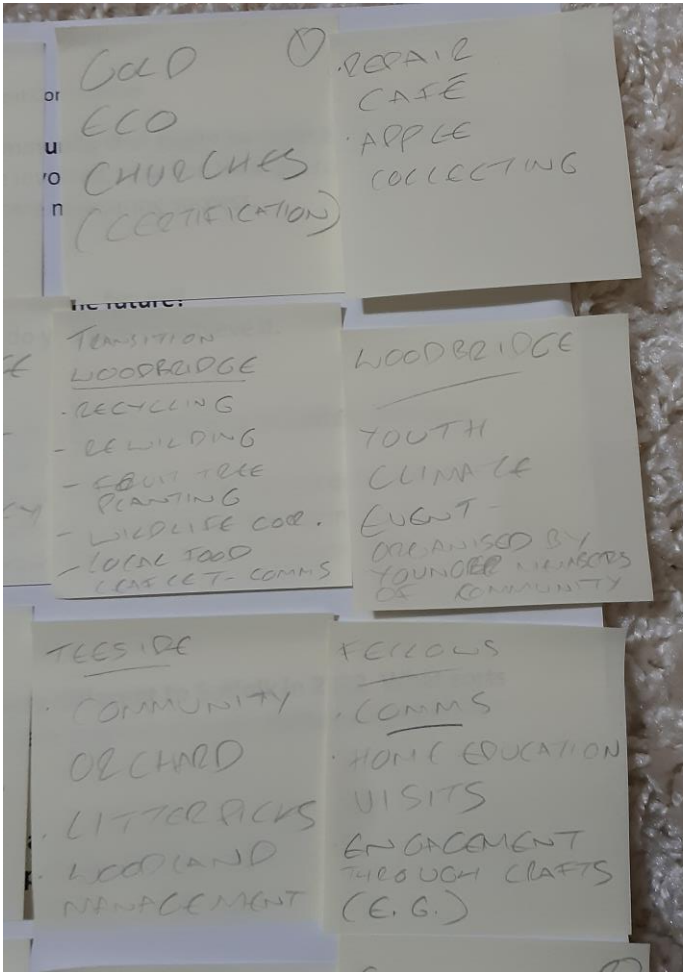 GOLD
ECO
CHURCHES
(CERTIFICATION)
· REPAIR
CAFÉ
· APPLE
COLLECTING
or
u
yo
n
he future?
TRANSITION
WOODBRIDGE
· RECYCLING
- REWILDING
- FRUIT TREE
PLANTING
- WILDLIFE COR.
- LOCAL FOOD
LEAFLET - COMMS
WOODBRIDGE
YOUTH
CLIMATE
EVENT -
ORGANISED BY
YOUNGER MEMBERS
OF COMMUNITY
TEESIDE
· COMMUNITY
ORCHARD
· LITTERPICKS
· WOODLAND
MANAGEMENT
FELLOWS
· COMMS
· HOME EDUCATION
VISITS
ENGAGEMENT
THROUGH CRAFTS
(E.G.)